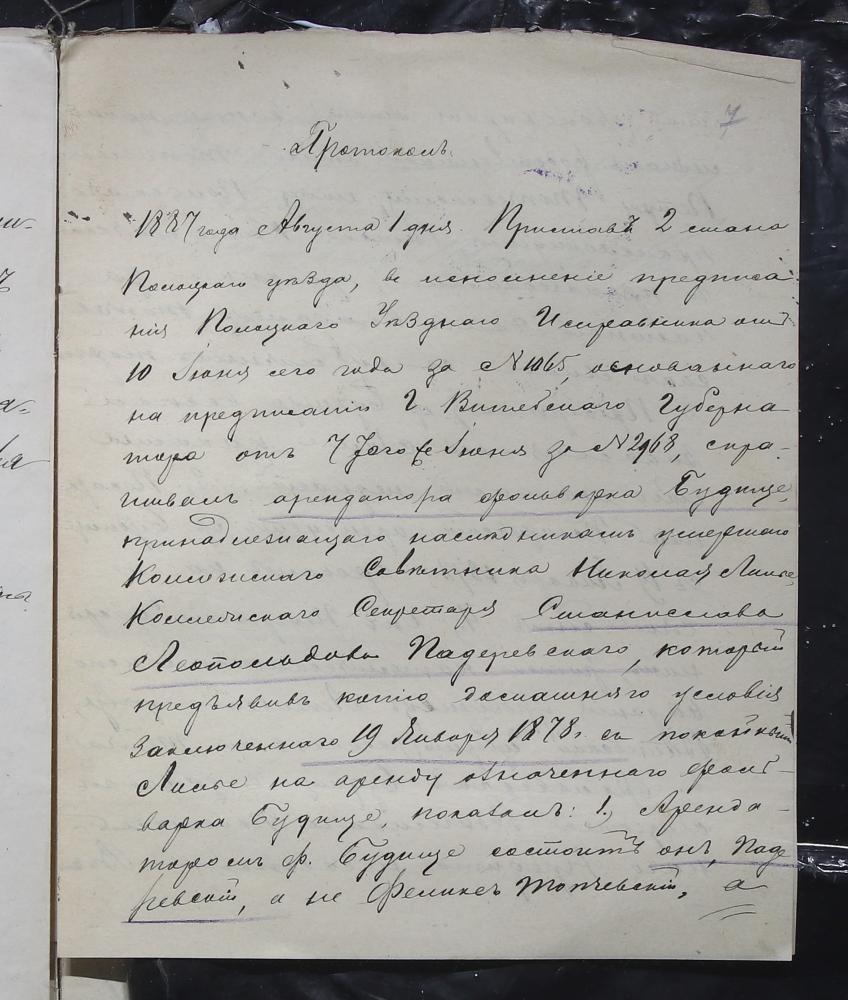 7
Протоколъ.
1887 года Августа 1 дня. Приставъ 2 стана
Полоцкаго уѣзда, въ исполненіе предписа
нія Полоцкаго Уѣзднаго Исправника отъ
10 Іюня сего года за №1065, основаннаго
на предписаніи Г. Витебскаго Губерна
тора отъ 7 того же Іюня за №2968, спра-
шивалъ арендатора фольварка Будище,
принадлежащаго наслѣдникамъ умершаго
Коллежскаго Совѣтника Николая Лилье,
Коллежскаго Секретаря Станислава
Леопольдова Падеревскаго, который
предъявивъ копію домашняго условія
заключеннаго 19 Января 1878 г. съ покойнымъ
Лилье на аренду означеннаго фоль-
варка Будище, показалъ: 1, Аренда-
торомъ ф. Будище состоитъ онъ, Паде
ревскій, а не Феликсъ Топчевскій, а